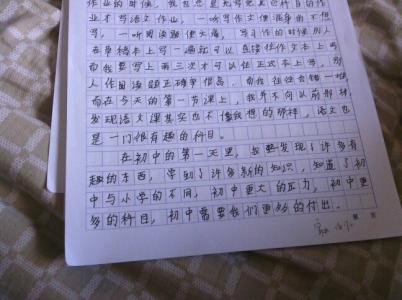 作业的时候,我也总是先写完其它科目的作
业才写语文作业,一听写作文便浑身的不想
写,一听阅读题便头痛,写习作的时候别人
在草稿本上写一遍就可以直接往作文本上写
而我要写上两三次才可以往正式本上写,别
人作阅读题正确率很高,而我往往会错一堆
而在今天的第一节课上,我并不向以前那样
发现语文课其实也不像我想的那样,语文也
是一门很有趣的科目。
在初中的第一天里,我发现了许多有
趣的东西,学到了许多新的知识,知道了初
中与小学的不同,初中更大的压力,初中更
多的科目,初中需要我们更多的付出。
第 页